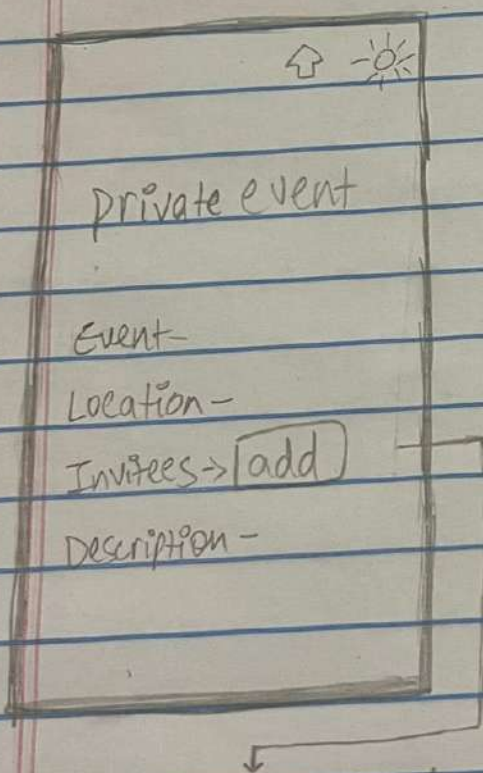 private event
Event-
Location-
Invitees-> add
Description-